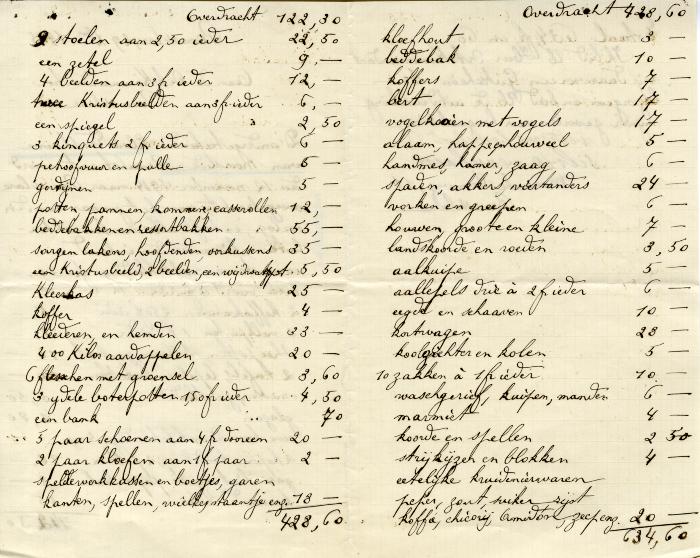 Overdracht 122,30
9 stoelen aan 2,50 ieder 22,50
een zetel 9,—
4 beelden aan 3 fr ieder 12,—
twee Kristusbeelden aan 3 fr ieder 6,—
een spiegel 2,50
3 kinquets 2 fr ieder 6 —
petroolvuur en pulle 6 —
gordynen 5 —
potten, pannen, kommen, casserollen 12,—
beddebakken en ressortbakken 55,—
sargen lakens, hoofdenden, oorkussens 35 —
een Kristusbeeld, 2 beelden, een wijwaterpot 5,50
Kleerkas 25 —
koffer 4 —
kleederen, en hemden 33 —
400 Kilos aardappelen 20 —
6 flesschen met groensel 3,60
3 ydele boterpotten 1.50 fr ieder 4,50
een bank 70
5 paar schoenen aan 4 fr dooreen 20 —
2 paar kloefen aan 1 fr paar 2 —
spelderwerkkussen en boetjes, garen
kanten, spellen, wielke staantje eng. 18 —
428,60
Overdracht 428,60
kloefhout 3 —
beddebak 10 —
koffers 7 —
bert 17 —
vogelkooien met vogels 17 —
alaam, kappenhouweel 5 —
handmes, hamer, zaag 6 —
spaden, akkers, viertanders 24 —
vorken en greepen 6 —
houwen, groote en kleine 7 —
landskoorde en roeden 3,50
aalkuipe 5 —
aallepels drie à 2 fr ieder 6 —
eegde en schaaven 10 —
kortwagen 28 —
koolgichter en kolen 5 —
10 zakken à 1 fr ieder 10 —
waschgerief, kuipen, manden 6 —
marmiet 4 —
koorde en spellen 2 50
strijkijzen en blokken 4 —
eetelijke kruidenierwaren
peper, zout suker rijst
koffé, chicorij amidon, zeep eng. 20 —
634,60